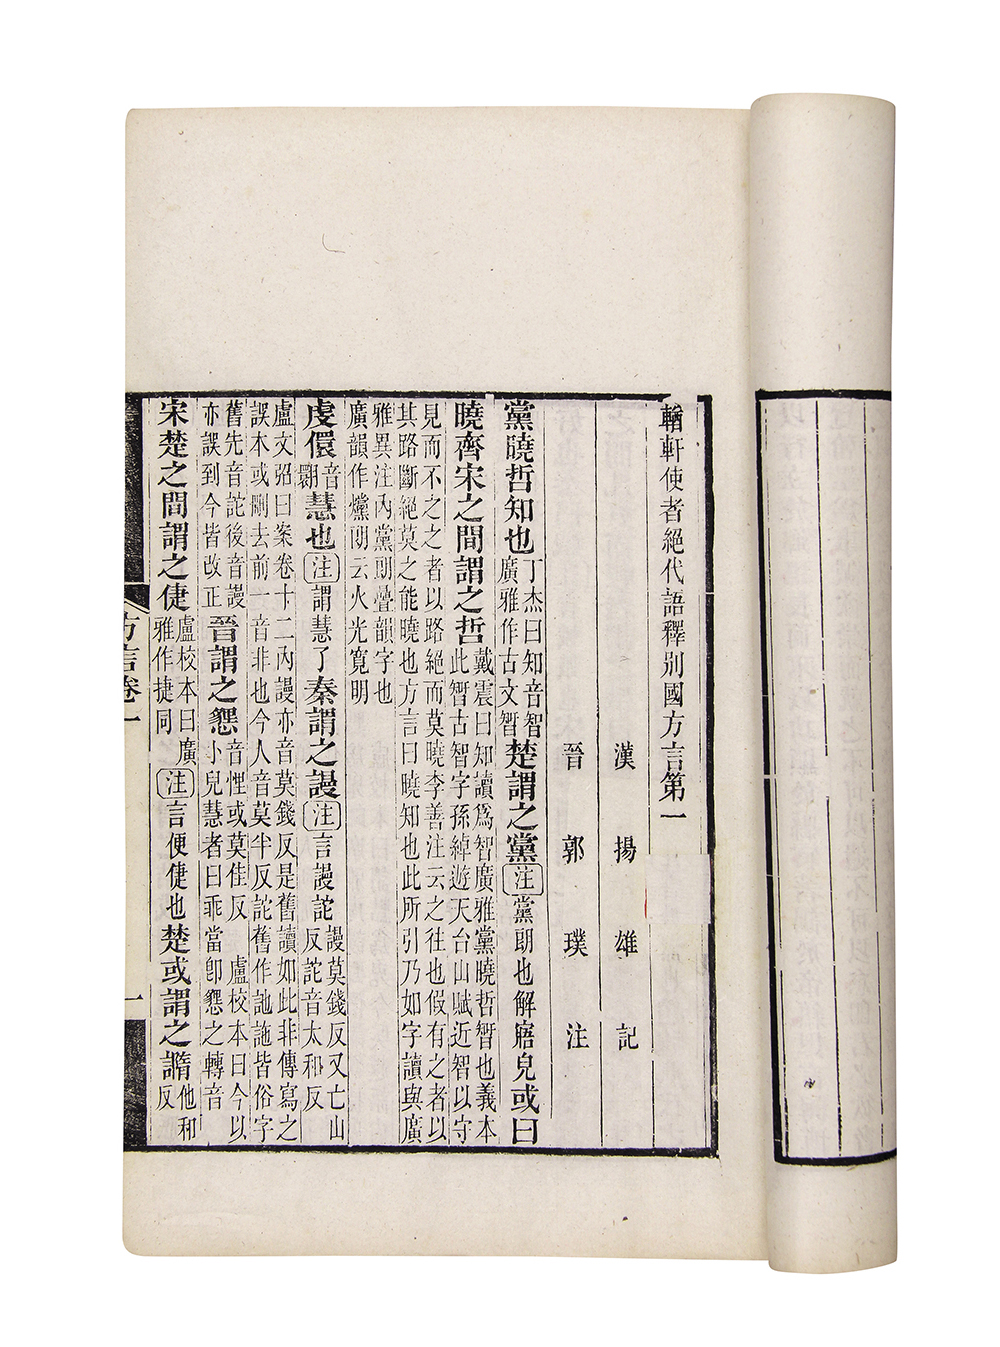 輶軒使者絕代語釋別國方言第一
漢揚雄記
晉郭璞注
黨曉哲知也丁杰曰知音智廣雅作古文𥏼楚謂之黨注黨朗也解寤皃或曰
曉齊宋之間謂之哲戴震曰知讀爲智廣雅黨曉哲𥏼也義本此𥏼古智字孫綽遊天台山賦近智以守
見而不之之者以路絕而莫曉李善注云之往也假有之者以
其路斷絕莫之能曉也方言曰曉知也此所引乃如字讀與廣
雅異注內黨朗疊韻字也
廣韻作爣朗云火光寬明
虔儇音翾慧也注謂慧了秦謂之謾注言謾詑謾莫錢反又亡山反詑音太和反
盧文弨曰案卷十二內謾亦音莫錢反是舊讀如此非傳寫之
誤本或刪去前一音非也今人音莫半反詑舊作訑訑皆俗字
舊先音詑後音謾亦誤到今皆改正晉謂之㦟音悝或莫佳反盧校本曰今以小兒慧者曰乖當卽㦟之轉音
宋楚之間謂之倢盧校本曰廣雅作捷同注言便倢也楚或謂之𧫦他和反
方言卷一
一